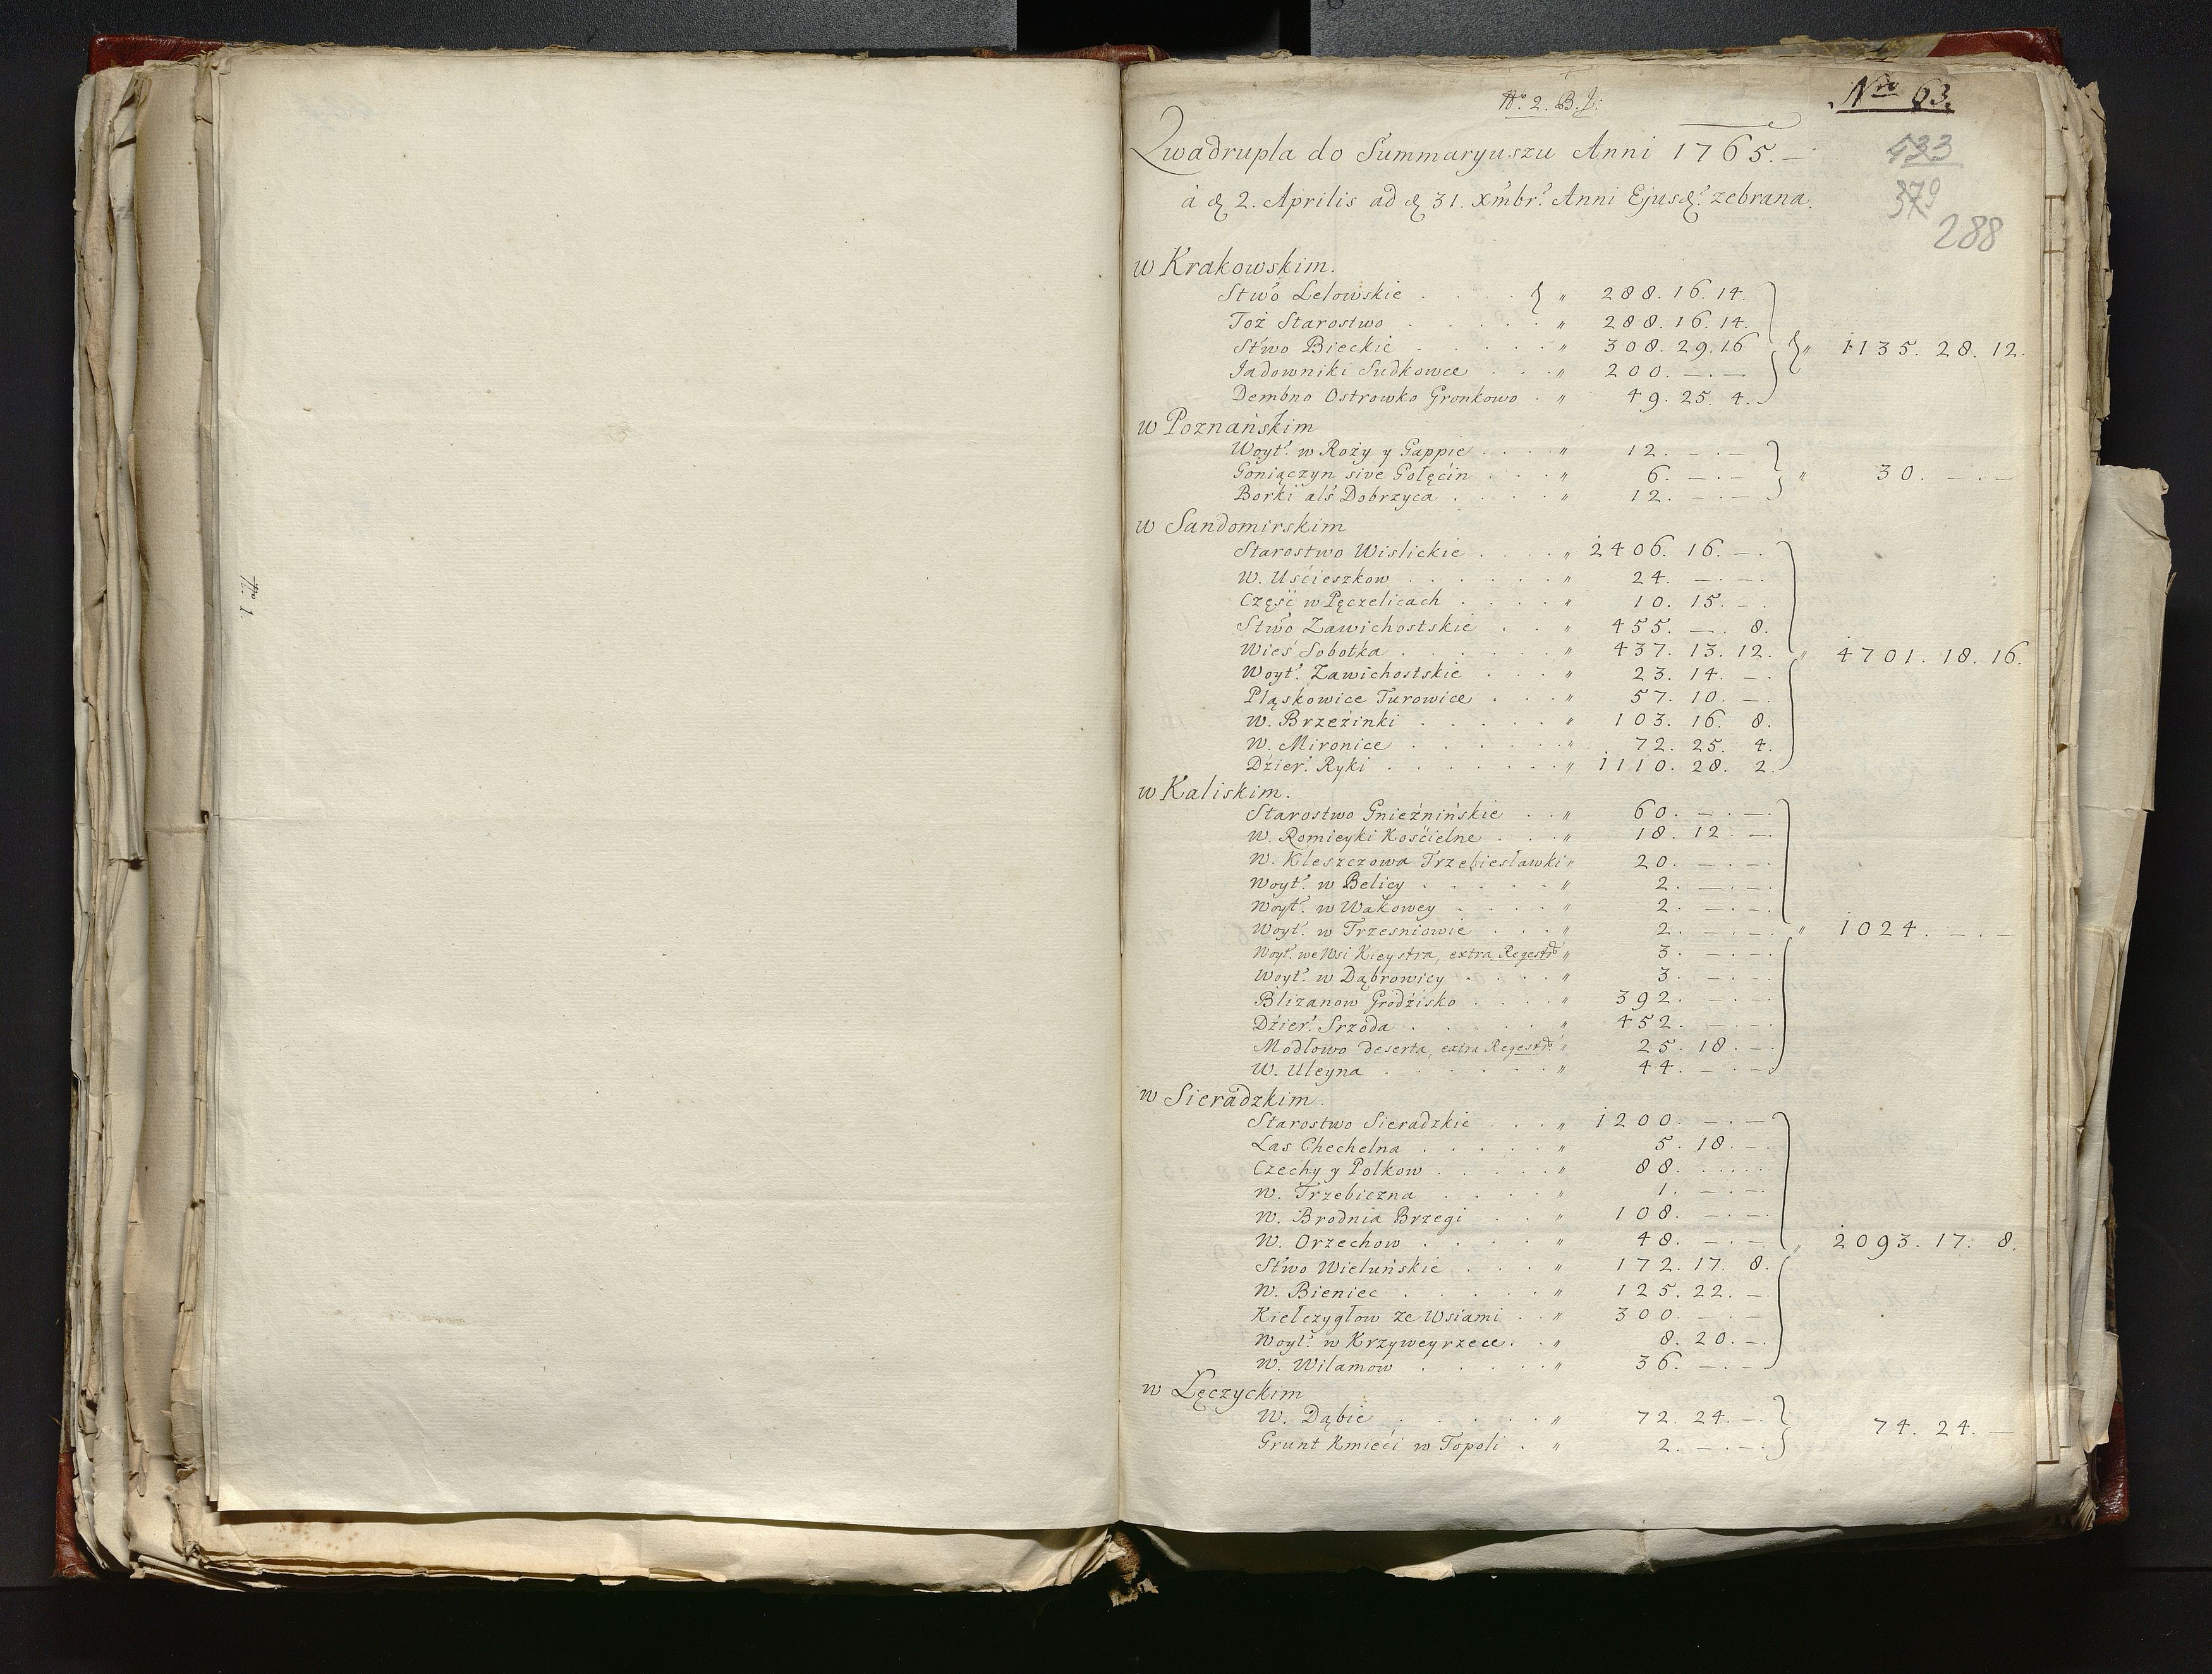 No. 1.
No. 2. B. J:
Nro 63.
Qwadrupla do Summaryuszu Anni 1765. —
433
à d. 2. Aprilis ad d. 31. Xmbr. Anni Ejusd. zebrana.
379
288
w Krakowskim.
Stwo Lelowskie . . . . } " 288. 16. 14.
Toż Starostwo . . . . . " 288. 16. 14.
Stwo Bieckie . . . . . " 308. 29. 16 } " 1135. 28. 12.
Jadowniki Sudkowce . . . " 200. — . —
Dembno Ostrowko Gronkowo . " 49. 25. 4.
w Poznańskim
Woyt. w Roży y Gappie . . . . " 12. — . —
Goniączyn sive Gołęćin . . . " 6. — . — } " 30. — . —
Borki als Dobrzyca . . . . " 12. — . —
w Sandomirskim
Starostwo Wislickie . . . . " 2406. 16. — .
W. Uścieszkow . . . . . . " 24. — . — .
Część w Pęczelicach . . . . " 10. 15. — .
Stwo Zawichostskie . . . " 455. — . 8.
Wieś Sobotka . . . . . . " 437. 13. 12. } " 4701. 18. 16.
Woyt. Zawichostskie . . . " 23. 14. — .
Pląskowice Turowice . . . " 57. 10. — .
W. Brzeźinki . . . . . " 103. 16. 8.
W. Mironice . . . . . . " 72. 25. 4.
Dźier. Ryki . . . . . . . " 1110. 28. 2.
w Kaliskim.
Starostwo Gnieźnińskie . . " 60. — . — .
W. Romieyki Kośćielne . . . " 18. 12. — .
W. Kleszczowa Trzebiesławki " 20. — . — .
Woyt. w Belicy . . . . . " 2. — . — .
Woyt. w Wakowey . . . . " 2. — . — .
Woyt. w Trzesniowie . . . " 2. — . — . } " 1024. — . —
Woyt. we Wsi Kieystra, extra Regestr " 3. — . — .
Woyt. w Dąbrowicy . . . . " 3. — . — .
Blizanow Grodźisko . . . . " 392. — . — .
Dźier. Srzoda . . . . . " 452. — . — .
Modłowo deserta, extra Regestr " 25. 18. — .
W. Uleyna . . . . . . " 44. — . — .
w Sieradzkim.
Starostwo Sieradzkie . . . " 1200. — . —
Las Chechelna . . . . . " 5. 18. — .
Czechy y Polkow . . . . . " 88. . . . .
W. Trzebiczna . . . . " 1. — . — .
W. Brodnia Brzegi . . " 108. — . — .
W. Orzechow . . . . . " 48. — . — } " 2093. 17. 8.
Stwo Wieluńskie . . . " 172. 17. 8.
W. Bieniec . . . . . . " 125. 22. —
Kiełczygłow ze Wsiami . . " 300. — . —
Woyt. w Krzyweyrzece . . " 8. 20. — .
W. Wilamow . . . . . " 36. — . — .
w Łęczyckim
W. Dąbie . . . . . . " 72. 24. — . } 74. 24. —
Grunt Kmieći w Topoli . " 2. — . — .